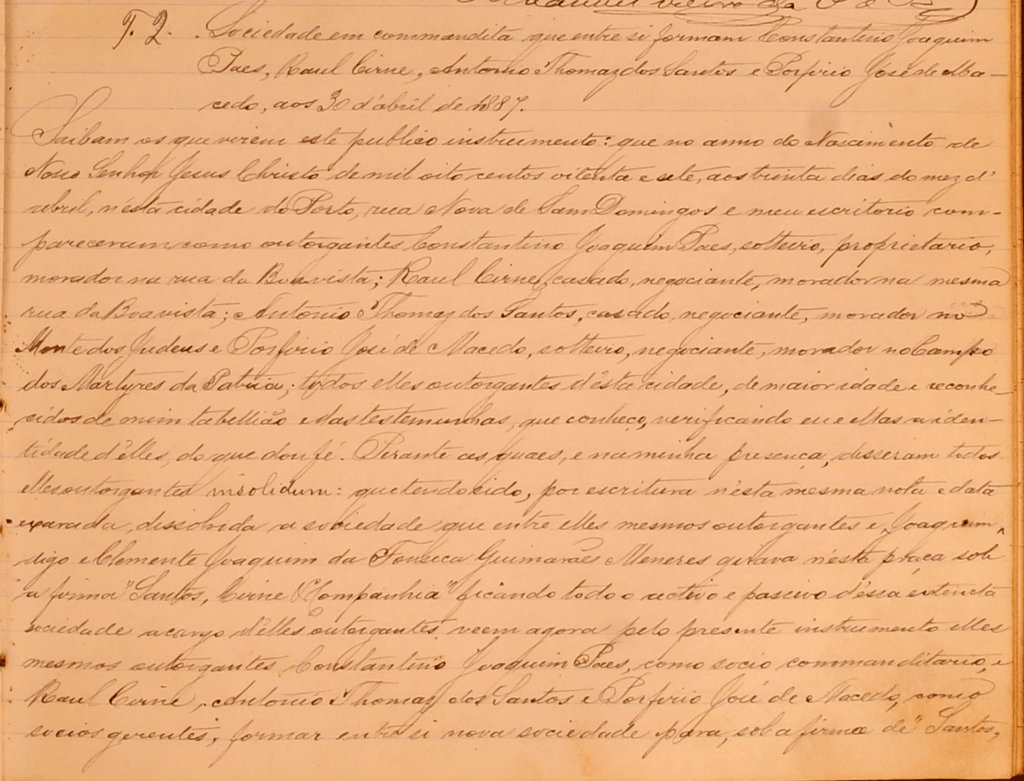 T. 2. Sociedade em commandita que entre si formam Constantino Joaquim
Paes, Raul Cirne, Antonio Thomaz dos Santos e Porfirio José de Ma-
cedo, aos 30 d'abril de 1887.
Saibam os que virem este publico instrumento: que no anno do Nascimento de
Nosso Senhor Jesus Christo de mil oito centos oitenta e sete, aos trinta dias do mez d'
abril, n'esta cidade do Porto, rua Nova de Sam Domingos e meu escritorio com-
pareceram como outorgantes Constantino Joaquim Paes, solteiro, proprietario,
morador na rua da Boavista; Raul Cirne, casado, negociante, morador na mesma
rua da Boavista; Antonio Thomaz dos Santos, casado, negociante, morador no
Monte dos Judeus e Porfirio José de Macedo, solteiro, negociante, morador no Campo
dos Martyres da Patria; todos elles outorgantes d'esta cidade, de maior idade e reconhe-
cidos de mim tabellião e das testemunhas, que conheço, verificando eu e ellas a iden-
tidade d'elles, do que dou fé. Perante as quaes, e na minha presença, disseram todos
elles outorgantes insolidum: que tendo sido, por escritura n'esta mesma nota e data
exarada, dissolvida a sociedade que entre elles mesmos outorgantes e Joaquim,
digo e Clemente Joaquim da Fonseca Guimarães Meneres girava n'esta praça sob
a firma "Santos, Cirne & Companhia" ficando todo o activo e passivo d'essa extincta
sociedade a cargo d'elles outorgantes, veem agora pelo presente instrumento elles
mesmos outorgantes Constantino Joaquim Paes, como socio commanditario, e
Raul Cirne, Antonio Thomaz dos Santos e Porfirio José de Macedo, como
socios gerentes, formar entre si nova sociedade para, sob a firma de "Santos,